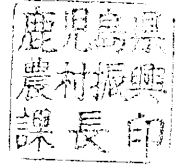 鹿児島県
農村振興
課長印